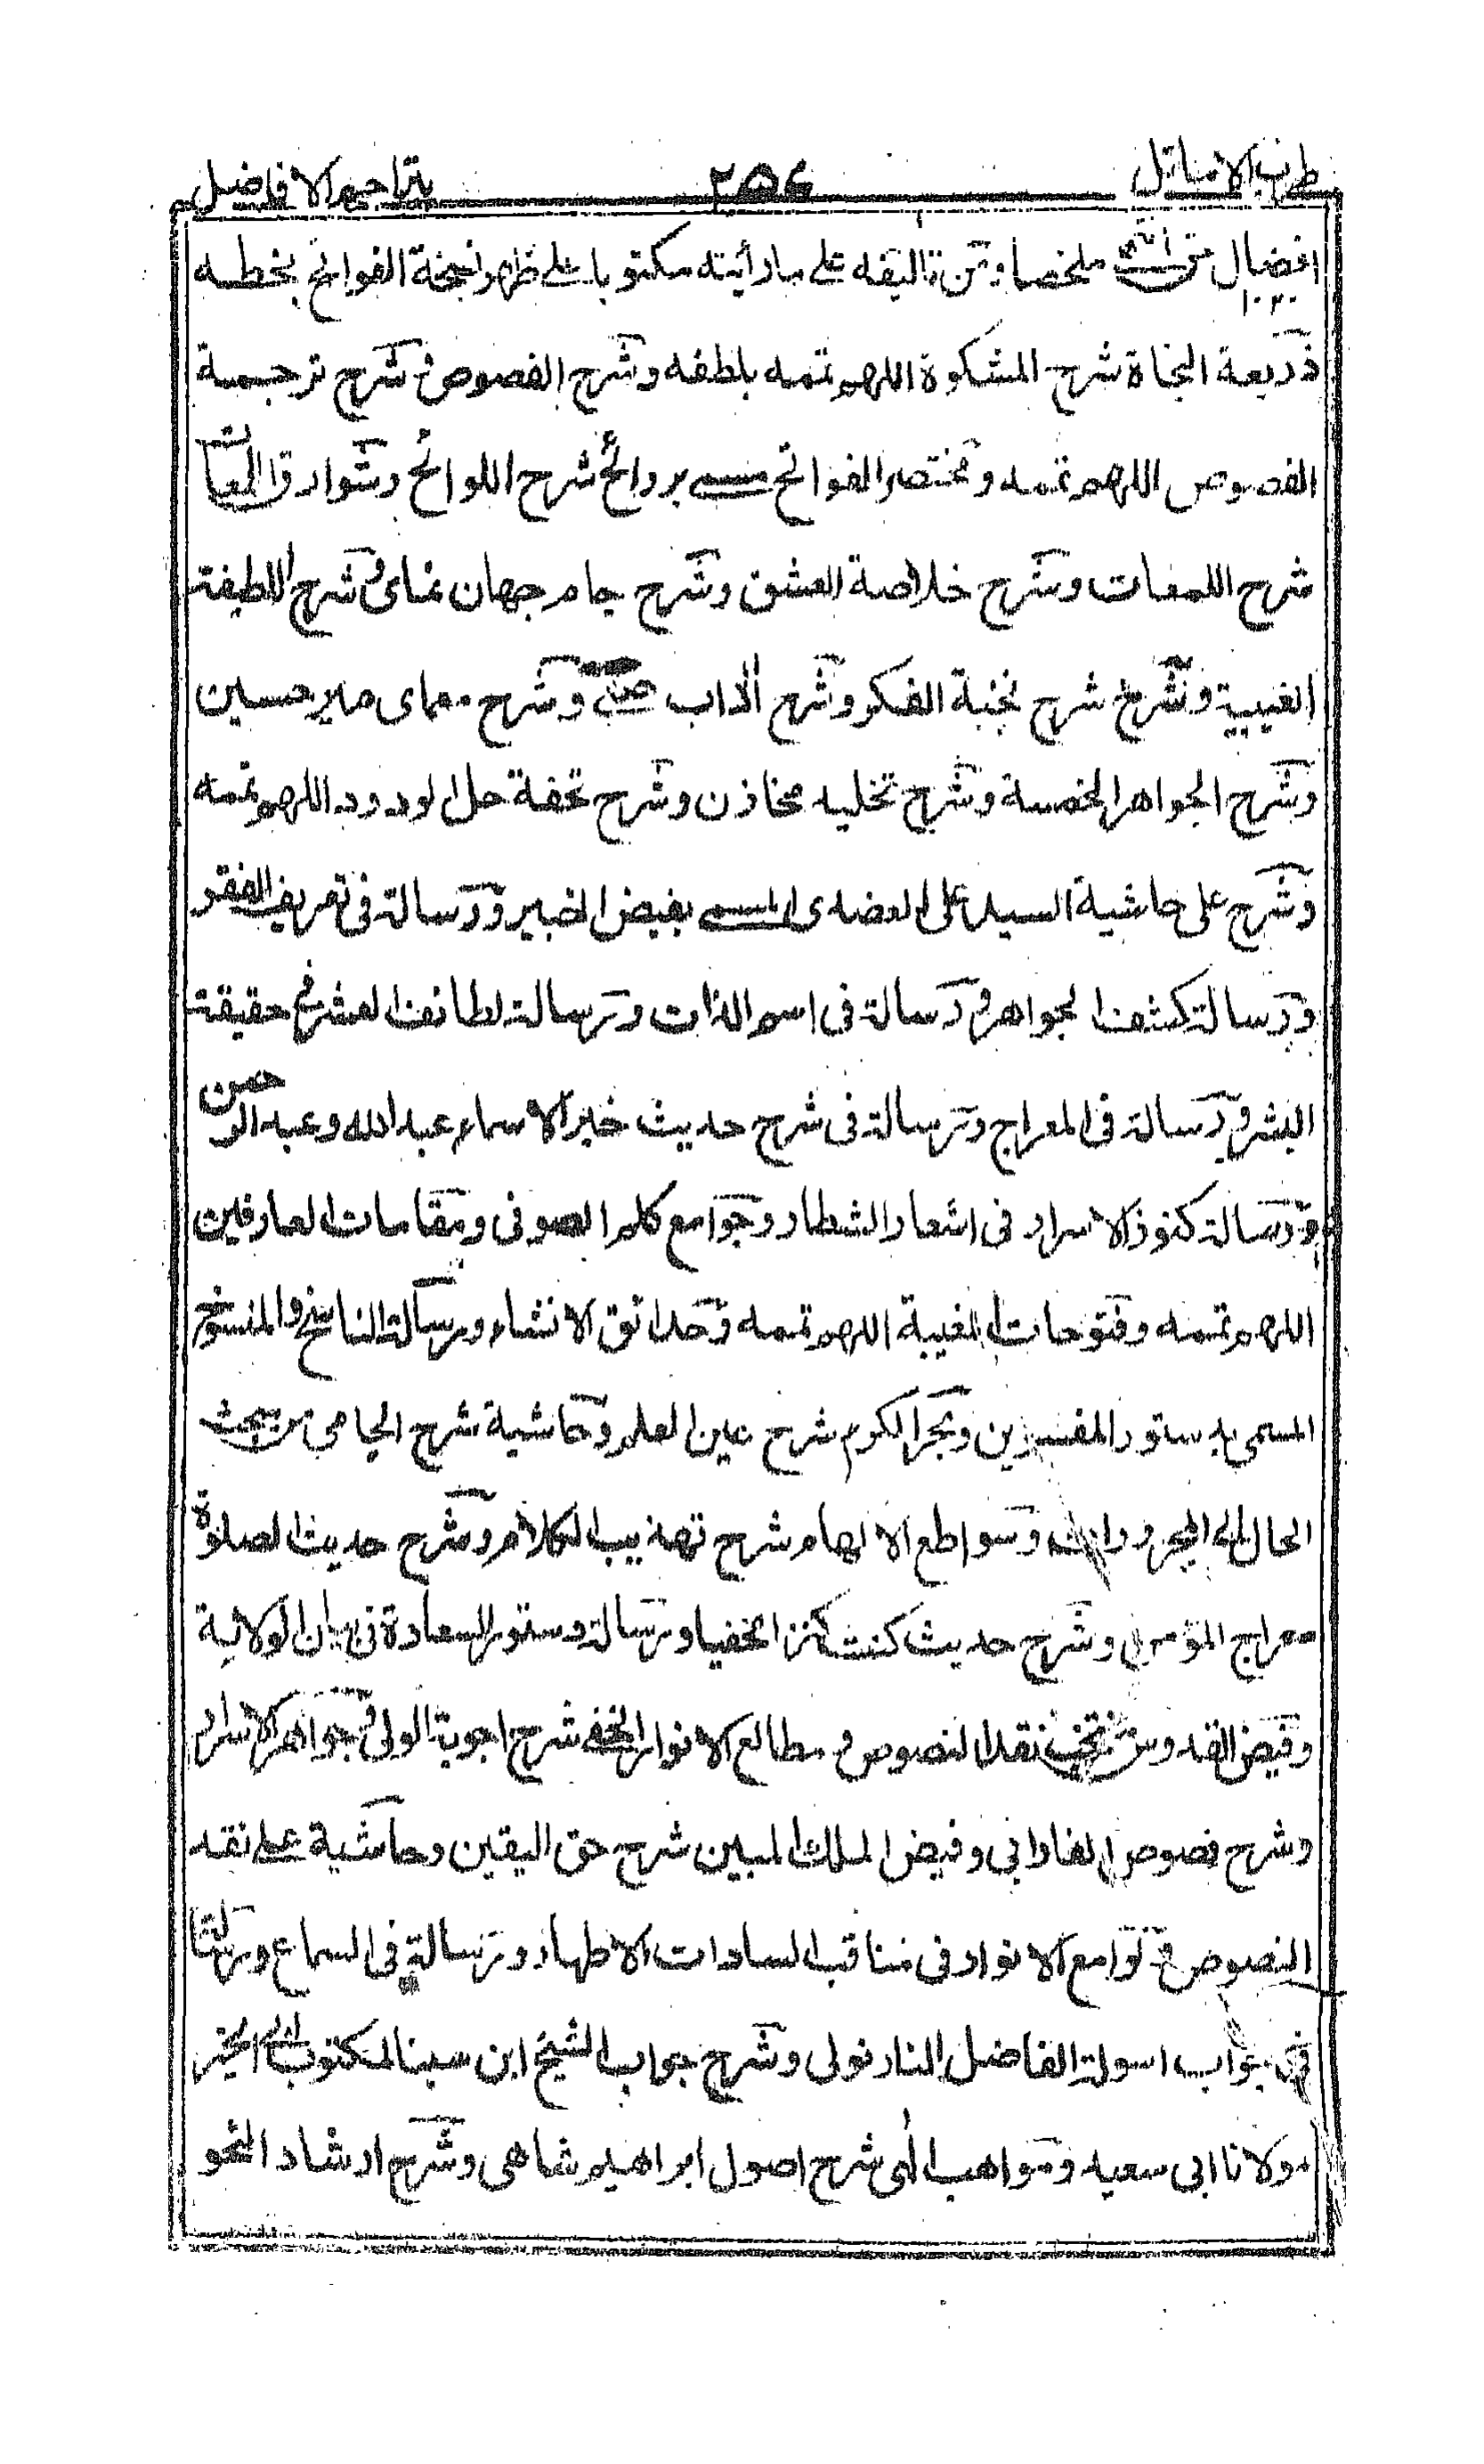 طرب الاماثل ٢٥٤ بتراجم الافاضل
افضال ملخصا ومن تاليفه على ما رأيته مكتوبا على ظهر نسخة الفوائح بخطه
١٠٣٠
ذريعة النجاة شرح المشكوة اللهم تممه بلطفه وشرح الفصوص وشرح ترجمة
الفصوص اللهم تممه ومختصر الفوائح مسمى بروائح شرح اللوائح وشوارق اللمعات
شرح اللمعات وشرح خلاصة العشق وشرح جام جهان نماى وشرح اللطيفة
الغيبية وشرح شرح نخبة الفكر وشرح آداب وشرح معماى مير حسين
وشرح الجواهر الخمسة وشرح تخليد مخازن وشرح تحفة حل اودود اللهم تممه
وشرح على حاشية السيد على العضدى المسمى بفيض الخبير ورسالة فى تعريف الفقر
ورسالة كشف الجواهر ورسالة فى اسم الذات ورسالة لطائف العشر فى حقيقة
البشر ورسالة فى المعراج ورسالة فى شرح حديث خير الاسماء عبد الله وعبد الرحمن
ورسالة كنوز الاسرار فى اشعار الشطار وجوامع كلم الصوفى ومقامات العارفين
اللهم تممه وفتوحات الغيبة اللهم تممه وحدائق الانشاء ورسالة الناسخ والمنسوخ
المسمى بدستور المفسرين وبحر الكرم شرح عين العلم وحاشية شرح الجامى من مبحث
الحال الى المجرورات وسواطع الالهام شرح تهذيب الكلام وشرح حديث الصلوة
معراج المؤمن وشرح حديث كنت كنزا مخفيا ورسالة دستور السعادة فى بيان الولاية
وفيض القدوس منتخب نقد النصوص ومطالع الانوار الخفى شرح اجوبة الولى وجواهر الاسرار
وشرح فصوص الفارابى وفيض الملك المبين شرح حق اليقين وحاشية على نقد
النصوص ولوامع الانوار فى مناقب السادات الاطهار ورسالة فى السماع ورسالة
فى جواب اسولة الفاضل النارنولى وشرح جواب الشيخ ابن سينا لمكتوب الشيخ
مولانا ابى سعيد ومواهب الٰهى شرح اصول ابراهيم شاهى وشرح ارشاد النحو